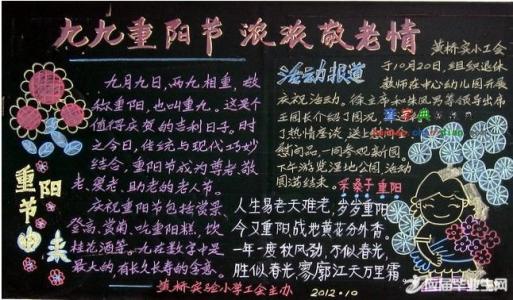 九九重阳节 浓浓敬老情
黄桥实小工会
九月九日，两九相重，故
称重阳，也叫重九。这是个
值得庆贺的吉利日子。时
之今日，传统与现代巧妙
结合，重阳节成为尊老、敬
老、爱老、助老的老人节。
庆祝重阳节包括赏景、
登高、赏菊、吃重阳糕、饮
桂花酒等。九在数字中是
最大的，有长久长寿的含意。
重阳节由来
活动报道
于10月20日，组织退休
教师在中心幼儿园开展
庆祝活动。徐立平和朱凤芳等领导出席
王园长介绍了园况
了热情座谈 送上
慰问品，一同参观新园。
下午游览湿地公园。活动
圆满结束。
采桑子重阳
人生易老天难老，岁岁重阳
今又重阳，战地黄花分外香。
一年一度秋风劲，不似春光，
胜似春光，寥廓江天万里霜。
黄桥实验小学工会主办
2012.10
应届毕业生网